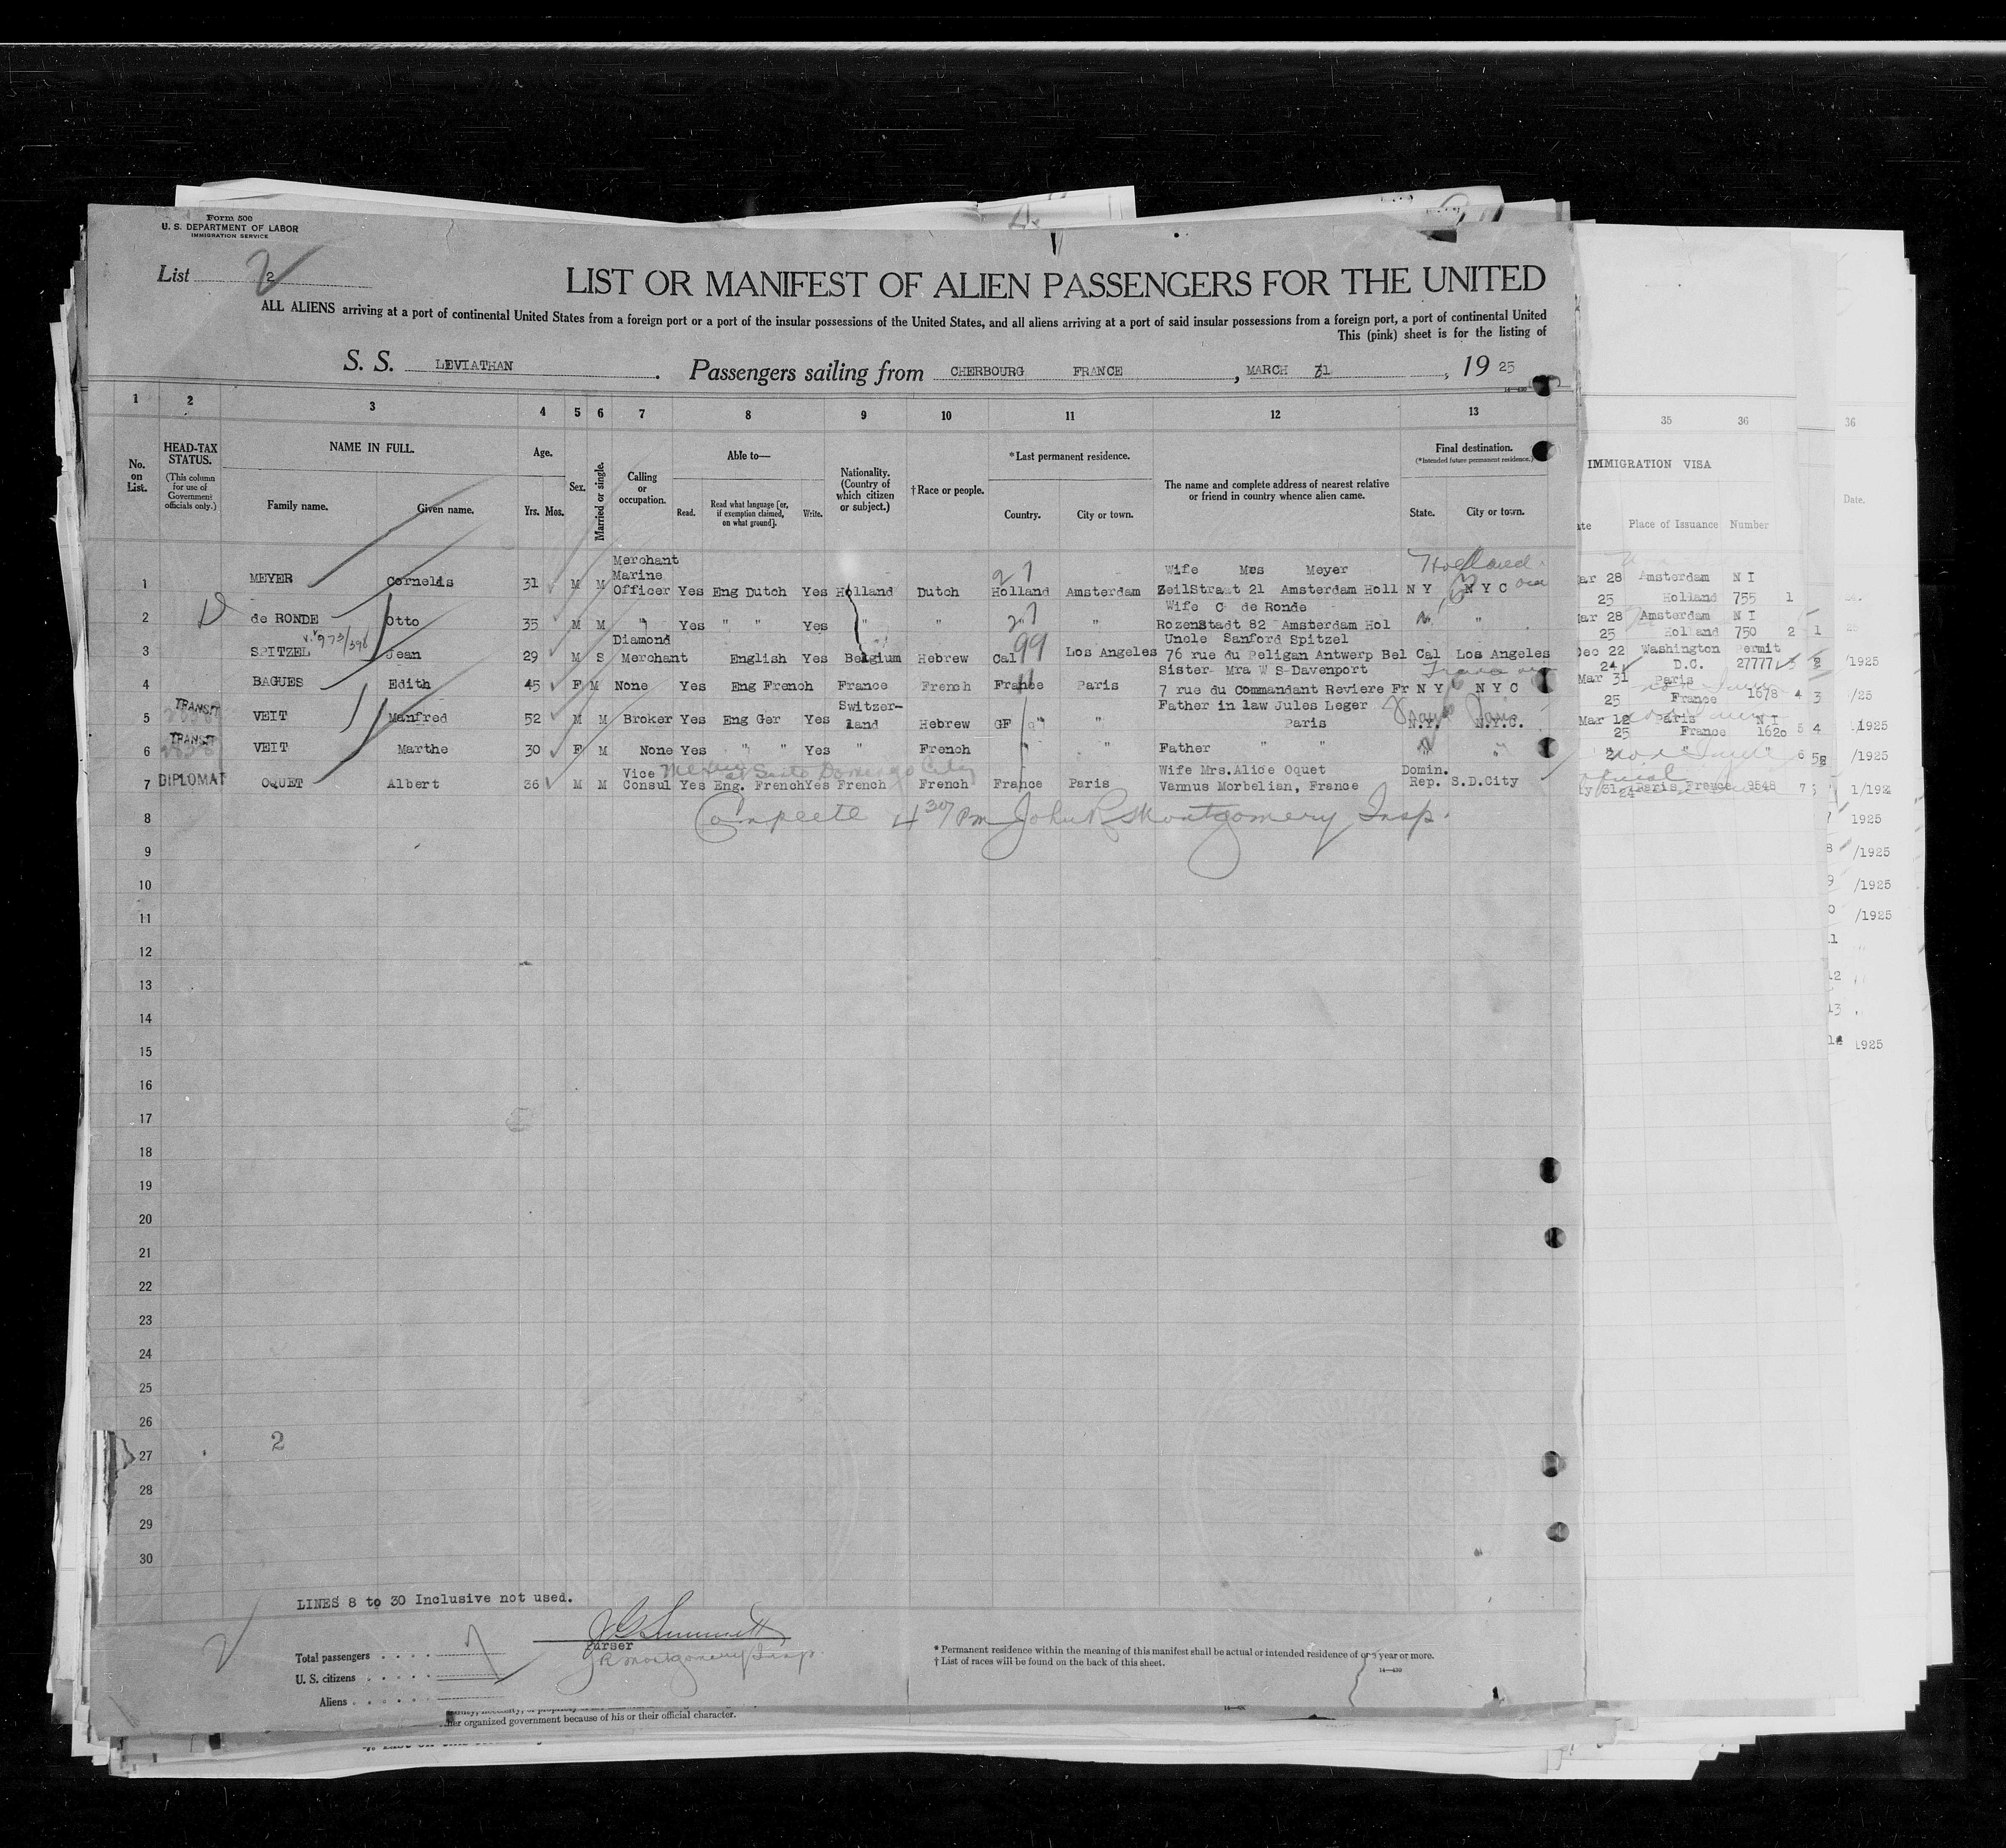 Form 500
U. S. DEPARTMENT OF LABOR
IMMIGRATION SERVICE
List 2
2
LIST OR MANIFEST OF ALIEN PASSENGERS FOR THE UNITED
ALL ALIENS arriving at a port of continental United States from a foreign port or a port of the insular possessions of the United States, and all aliens arriving at a port of said insular possessions from a foreign port, a port of continental United
This (pink) sheet is for the listing of
S. S. LEVIATHAN. Passengers sailing from CHERBOURG FRANCE, MARCH 31, 19 25
1 2 3 4 5 6 7 8 9 10 11 12 13
No. on List.
HEAD-TAX STATUS.
(This column for use of Government officials only.)
NAME IN FULL.
Family name. Given name.
Age.
Yrs. Mos.
Sex.
Married or single.
Calling or occupation.
Able to—
Read. Read what language [or, if exemption claimed, on what ground]. Write.
Nationality. (Country of which citizen or subject.)
†Race or people.
*Last permanent residence.
Country. City or town.
The name and complete address of nearest relative or friend in country whence alien came.
Final destination.
(*Intended future permanent residence.)
State. City or town.
1 MEYER Cornelis 31 M M Merchant Marine Officer Yes Eng Dutch Yes Holland Dutch 27 Holland Amsterdam Wife Mrs Meyer ZeilStraat 21 Amsterdam Holl N Y N Y C Holland
2 de RONDE Otto 35 M M " Yes " " Yes " " 27 " Wife C de Ronde Rozenstadt 82 Amsterdam Hol " "
973/396
3 SPITZEL Jean 29 M S Diamond Merchant English Yes Belgium Hebrew Cal 99 Los Angeles Uncle Sanford Spitzel 76 rue du Peligan Antwerp Bel Cal Los Angeles
4 BAGUES Edith 45 F M None Yes Eng French France French France Paris Sister- Mra W S-Davenport 7 rue du Commandant Reviere Fr N Y N Y C
TRANSIT
5 VEIT Manfred 52 M M Broker Yes Eng Ger Yes Switzer-land Hebrew GF " " Father in law Jules Leger Paris N.Y. N.Y.C.
TRANSIT
6 VEIT Marthe 30 F M None Yes " " Yes " French " " Father " " " "
7 DIPLOMAT OQUET Albert 36 M M Vice Consul Yes Eng. French Yes French French France Paris Wife Mrs.Alice Oquet Vannus Morbelian, France Domin. Rep. S.D.City
at Santo Domingo City
8 Complete 4 30/ Pm John R Montgomery Insp.
9
10
11
12
13
14
15
16
17
18
19
20
21
22
23
24
25
26
2
27
28
29
30
LINES 8 to 30 Inclusive not used.
Purser
R Montgomery Insp.
Total passengers . . . . . 7
U. S. citizens . . . . .
Aliens . . . . . .
* Permanent residence within the meaning of this manifest shall be actual or intended residence of one year or more.
† List of races will be found on the back of this sheet.
14—430
her organized government because of his or their official character.
35 36
IMMIGRATION VISA
Place of Issuance Number
ar 28 Amsterdam N I
25 Holland 755 1
ar 28 Amsterdam N I
25 Holland 750 2
Dec 22 Washington Permit
24 D.C. 27777 3
Mar 31 Paris
25 France 1678 4
Mar 12 Paris N I
25 France 1620 5
" " " 6
Official
y 31 24 Paris France 9548 7
36
Date.
1
2 /1925
3 /25
4 1925
5 /1925
1/192
1925
8 /1925
9 /1925
/1925
12
13
14 1925